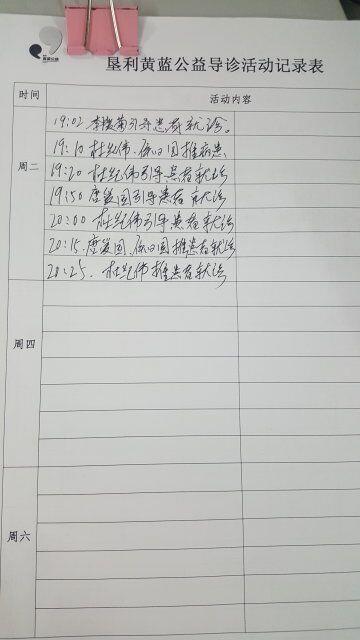 垦利黄蓝公益导诊活动记录表
时间 活动内容
周二
19:02 李 菊引导患者就诊。
19:10 杜 伟、 国推病患
19:20 杜 伟引导患者就诊
19:50 唐爱国引导患者就诊
20:00 杜 伟引导患者就诊
20:15 唐爱国、 国推患者就诊
20:25. 杜 伟推患者就诊
周四
周六